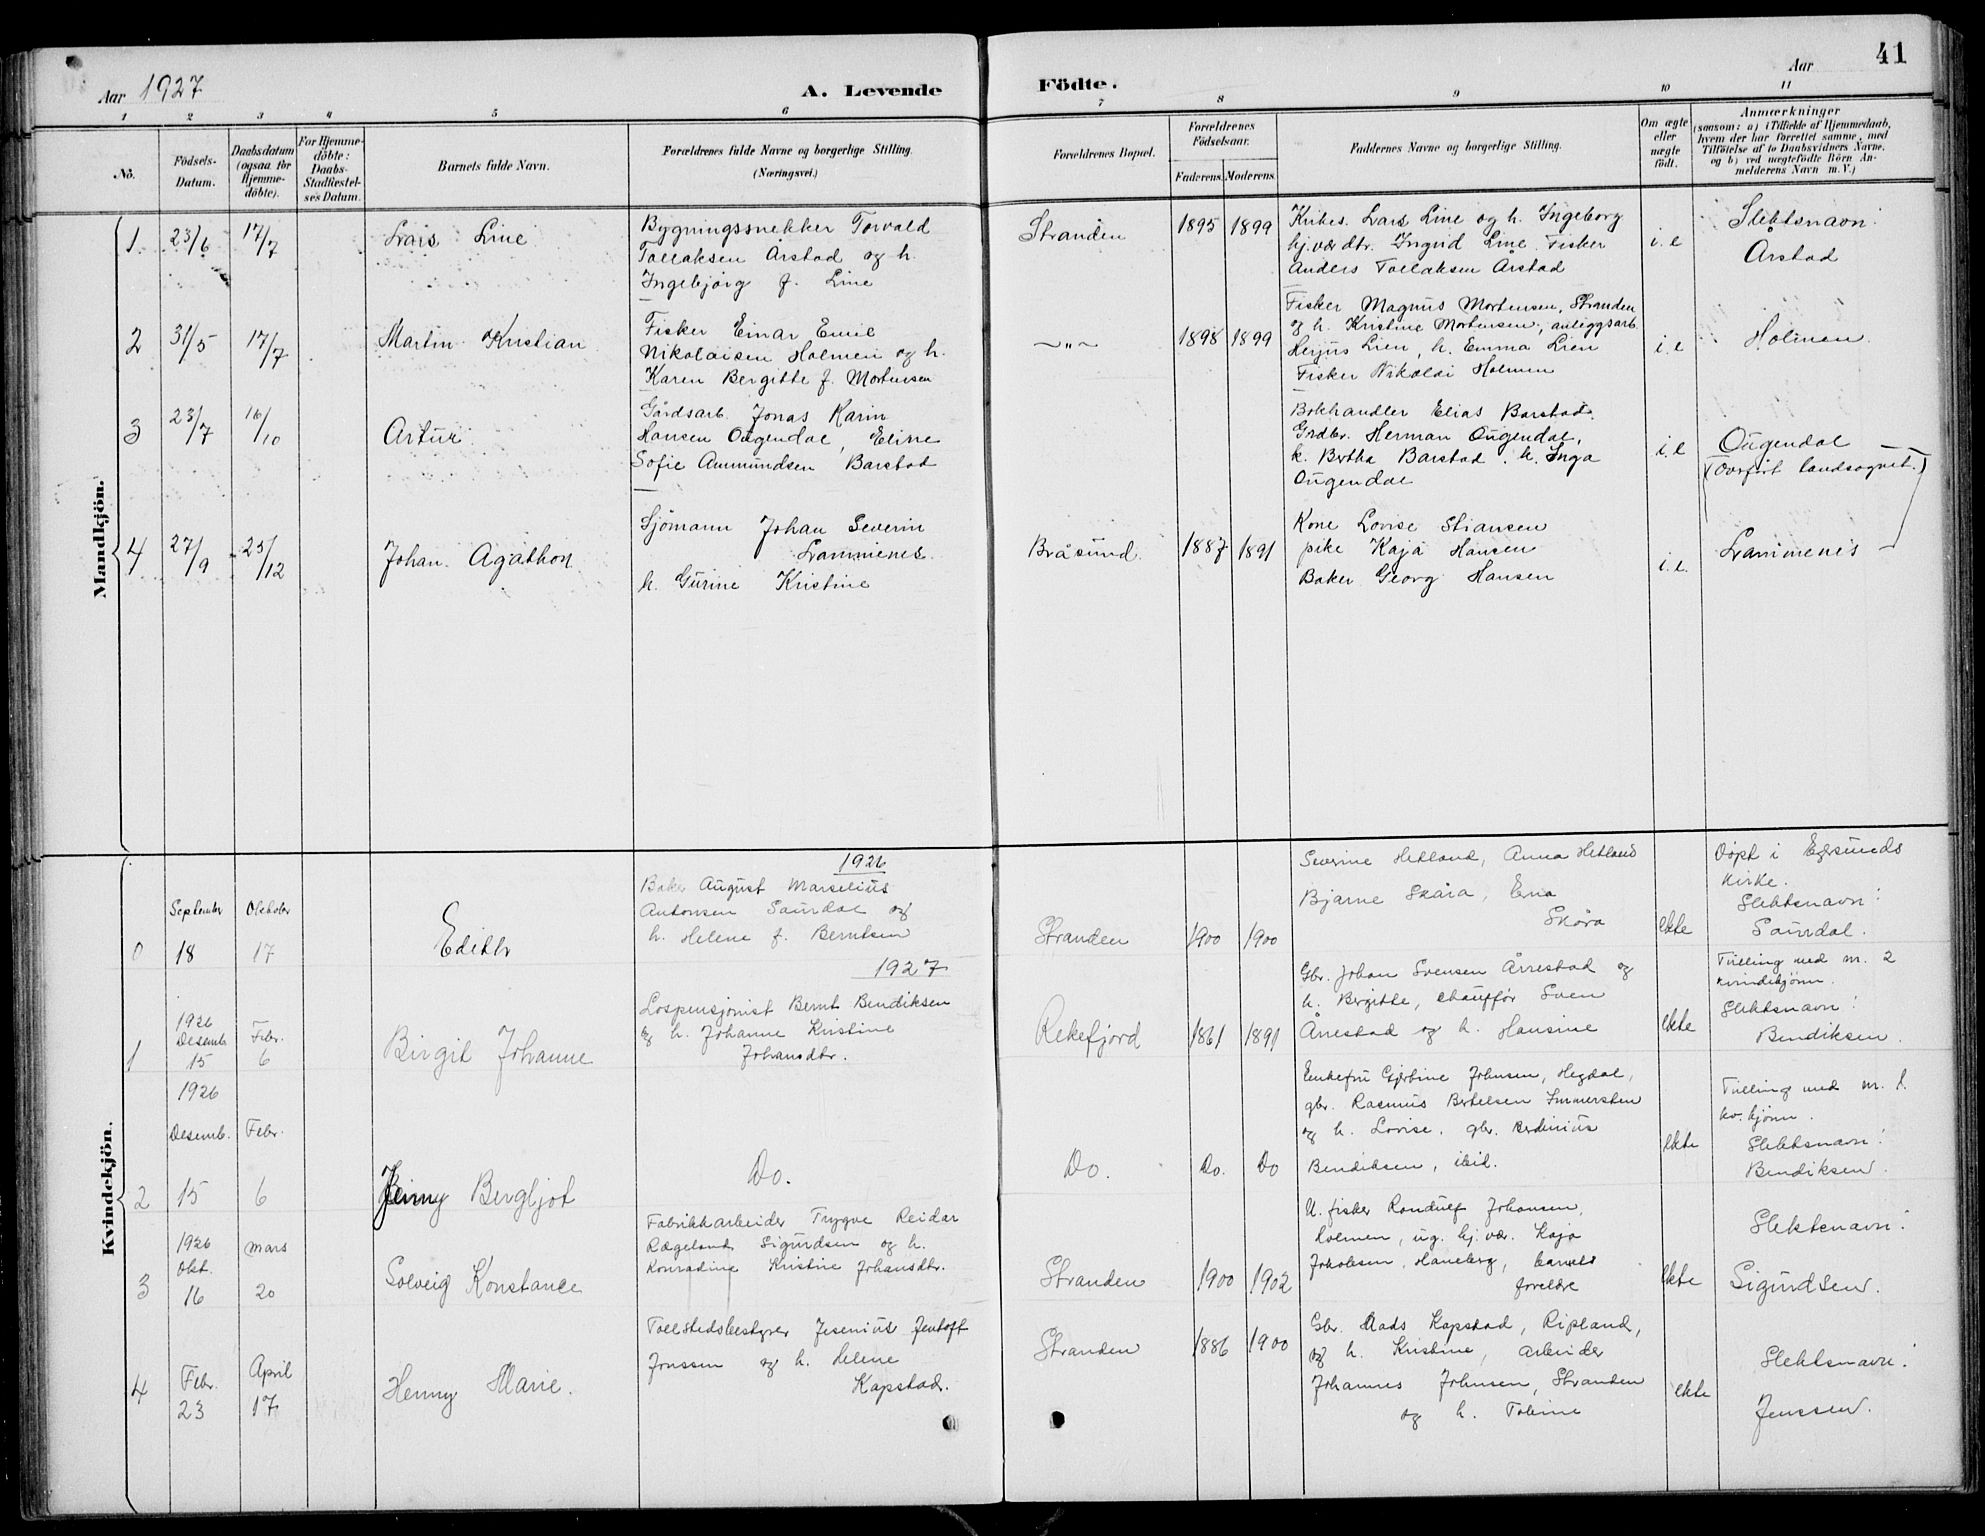 41
Aar 1927
A. Levende
Födte.
Aar
1 2 3 4 5 6 7 8 9 10 11
No.
Födsels-
Datum.
Daabsdatum
(ogsaa for
Hjemme-
döbte).
For Hjemme-
döbte:
Daabs-
Stadfæstel-
ses Datum.
Barnets fulde Navn.
Forældrenes fulde Navne og borgerlige Stilling.
(Næringsvei.)
Forældrenes Bopæl.
Forældrenes
Födselsaar.
Faderens. Moderens.
Faddernes Navne og borgerlige Stilling.
Om ægte
eller
uægte
födt.
Anmærkninger
(saasom: a) i Tilfælde af Hjemmedaab,
hvem der har forrettet samme, med
Tilföielse af to Daabsvidners Navne,
og b) ved uægtefödte Börn An-
melderens Navn m. V.)
Mandkjön.
1
23/6
17/7
Lars Line
Bygningssnekker Torvald
Tollaksen Årstad og h.
Ingebjörg f. Line
Stranden
1895 1899
Lars Line og h. Ingeborg
hj.vær. dtr. Ingrid Line. Fisker
Anders Tollaksen Årstad
i. e
Slektsnavn:
Årstad
2
31/5
17/7
Martin Kristian
Fisker Einar Emil
Nikolaisen Holmen og h.
Karen Bergitte f. Mortensen
—„—
1898 1899
Fisker Magnus Mortensen, Stranden
og h. Kristine Mortensen, anleggsarb.
Lien, h. Emma Lien
Fisker Nikolai Holmen
i. e
Holmen.
3
23/7
16/10
Artur
Gårdsarb. Jonas Karin
Hansen Ougendal, Eline
Sofie Ammundsen Barstad
Bokhandler Elias Barstad.
Grdbr. Herman Ougendal,
k. Bertha Barstad. h. Inga
Ougendal
i. e
Ougendal
(Overfört landsognet.)
4
27/9
25/12
Johan Agathon
Sjömann Johan Severin
Lammenes.
h. Gurine Kristine
Bråsund.
1887 1891
Kone Lovise Stiansen
pike Kaja Hansen
Baker Georg Hansen
i. e.
Lammenes
Kvindekjön.
1926
0
September
18
Oktober
17
Edith
Baker August Marselius
Antonsen Saurdal og
h. Helene f. Berntsen
Stranden
1900 1900
Severine Hetland, Anna Hetland
Bjarne Skåra, Erna
Skåra
ekte
Döpt i Egersunds
Kirke.
Slektsnavn:
Saurdal.
1927
1
1926
Desemb.
15
Febr.
6
Birgit Johanne
Lospensjonist Bernt Bendiksen
og h. Johanne Kristine
Johansdtr.
Rekefjord
1861 1891
Gbr. Johan Svensen Årrestad og
h. Bergitte, chaufför Sven
Årrestad og h. Hansine
ekte
Tvilling med nr. 2
kvindekjönn.
Slektsnavn:
Bendiksen.
2
1926
Desemb.
15
Febr.
6
Jenny Bergljot
Do.
Do.
Do. Do
Enkefru Gjertine Johnsen, Hegdal,
gbr. Rasmus Bertelsen Immerstein
og h. Lovise, gbr. Berdinius
Bendiksen, ibid.
ekte
Tvilling med nr. 1.
kv. kjönn.
Slektsnavn:
Bendiksen.
3
1926
Okt.
16
Mars
20
Solveig Konstance
Fabrikkarbeider Trygve Reidar
Rægeland Sigurdsen og h.
Konradine Kristine Johansdtr.
Stranden
1900 1902
U. fisker Rondulf Johansen,
Holmen, ug. hj. vær. Kaja
Jakobsen, Haneberg, barnets
foreldre
ekte
Slektsnavn:
Sigurdsen.
4
Febr.
23
April
17
Henny Marie.
Tollstedsbestyrer Jesenius Jentoft
Jenssen og h. Helene
Kapstad.
Stranden
1886 1900
Gbr. Mads Kapstad, Ripland,
og h. Kristine, arbeider
Johannes Johnsen, Stranden
og h. Tobine
ekte
Slektsnavn:
Jenssen.